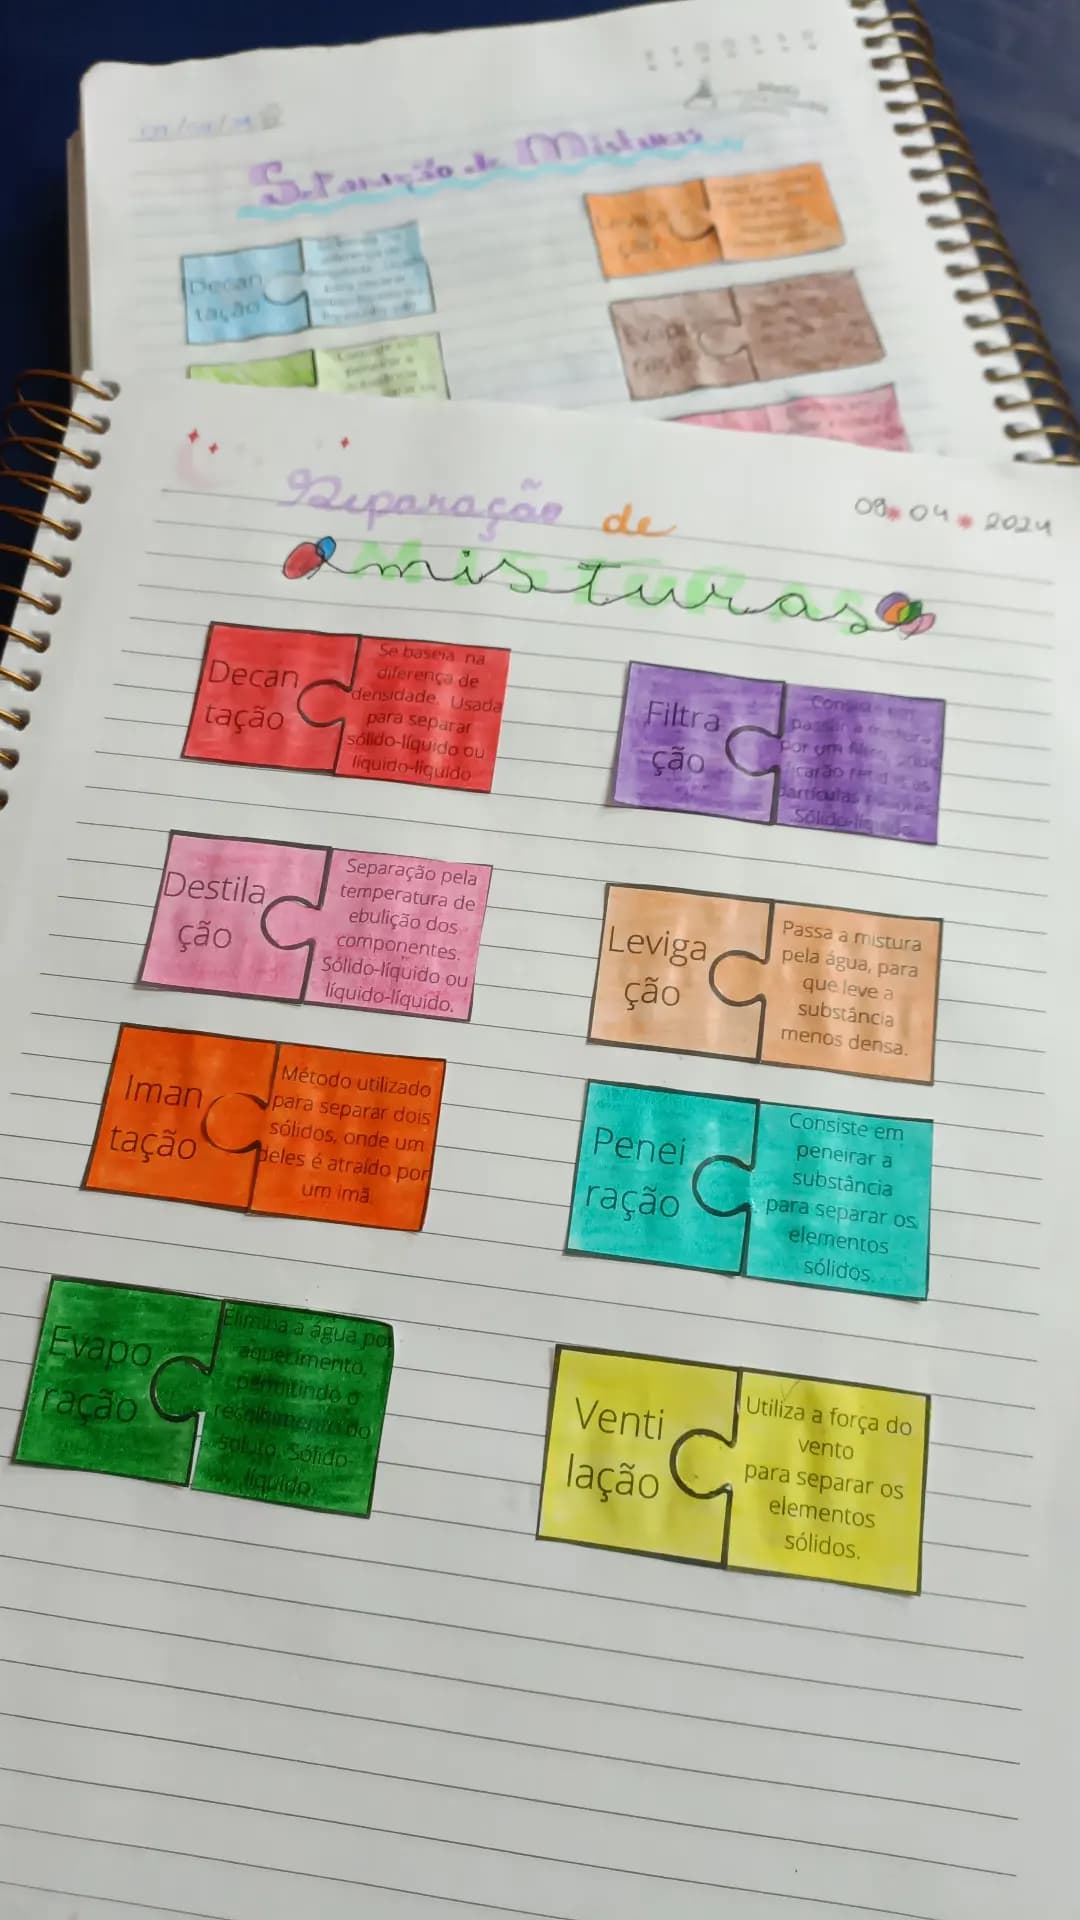 Separação de Misturas
Decan
tação
Separação de
09.04.2024
misturas
Decan
tação
Se baseia na
diferença de
densidade. Usada
para separar
sólido-líquido ou
líquido-líquido
Filtra
ção
Consiste em
passar a mistura
por um filtro, onde
ficarão
partículas
Sólido-líquido
Destila
ção
Separação pela
temperatura de
ebulição dos
componentes.
Sólido-líquido ou
líquido-líquido.
Leviga
ção
Passa a mistura
pela água, para
que leve a
substância
menos densa.
Iman
tação
Método utilizado
para separar dois
sólidos, onde um
deles é atraído por
um imã.
Penei
ração
Consiste em
peneirar a
substância
para separar os
elementos
sólidos.
Evapo
ração
Elimina a água por
aquecimento,
permitindo o
recolhimento do
soluto. Sólido-
líquido.
Venti
lação
Utiliza a força do
vento
para separar os
elementos
sólidos.